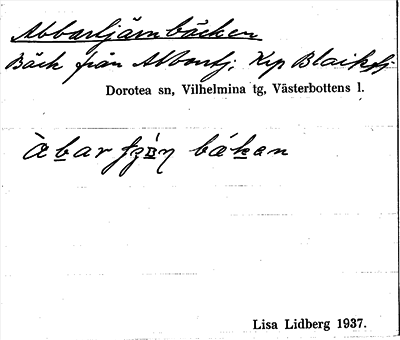 Abbortjärnbäcken
Bäck från Abbortj; Krp Blaikfj.
Dorotea sn, Vilhelmina tg, Västerbottens l.
bákan
Lisa Lidberg 1937.